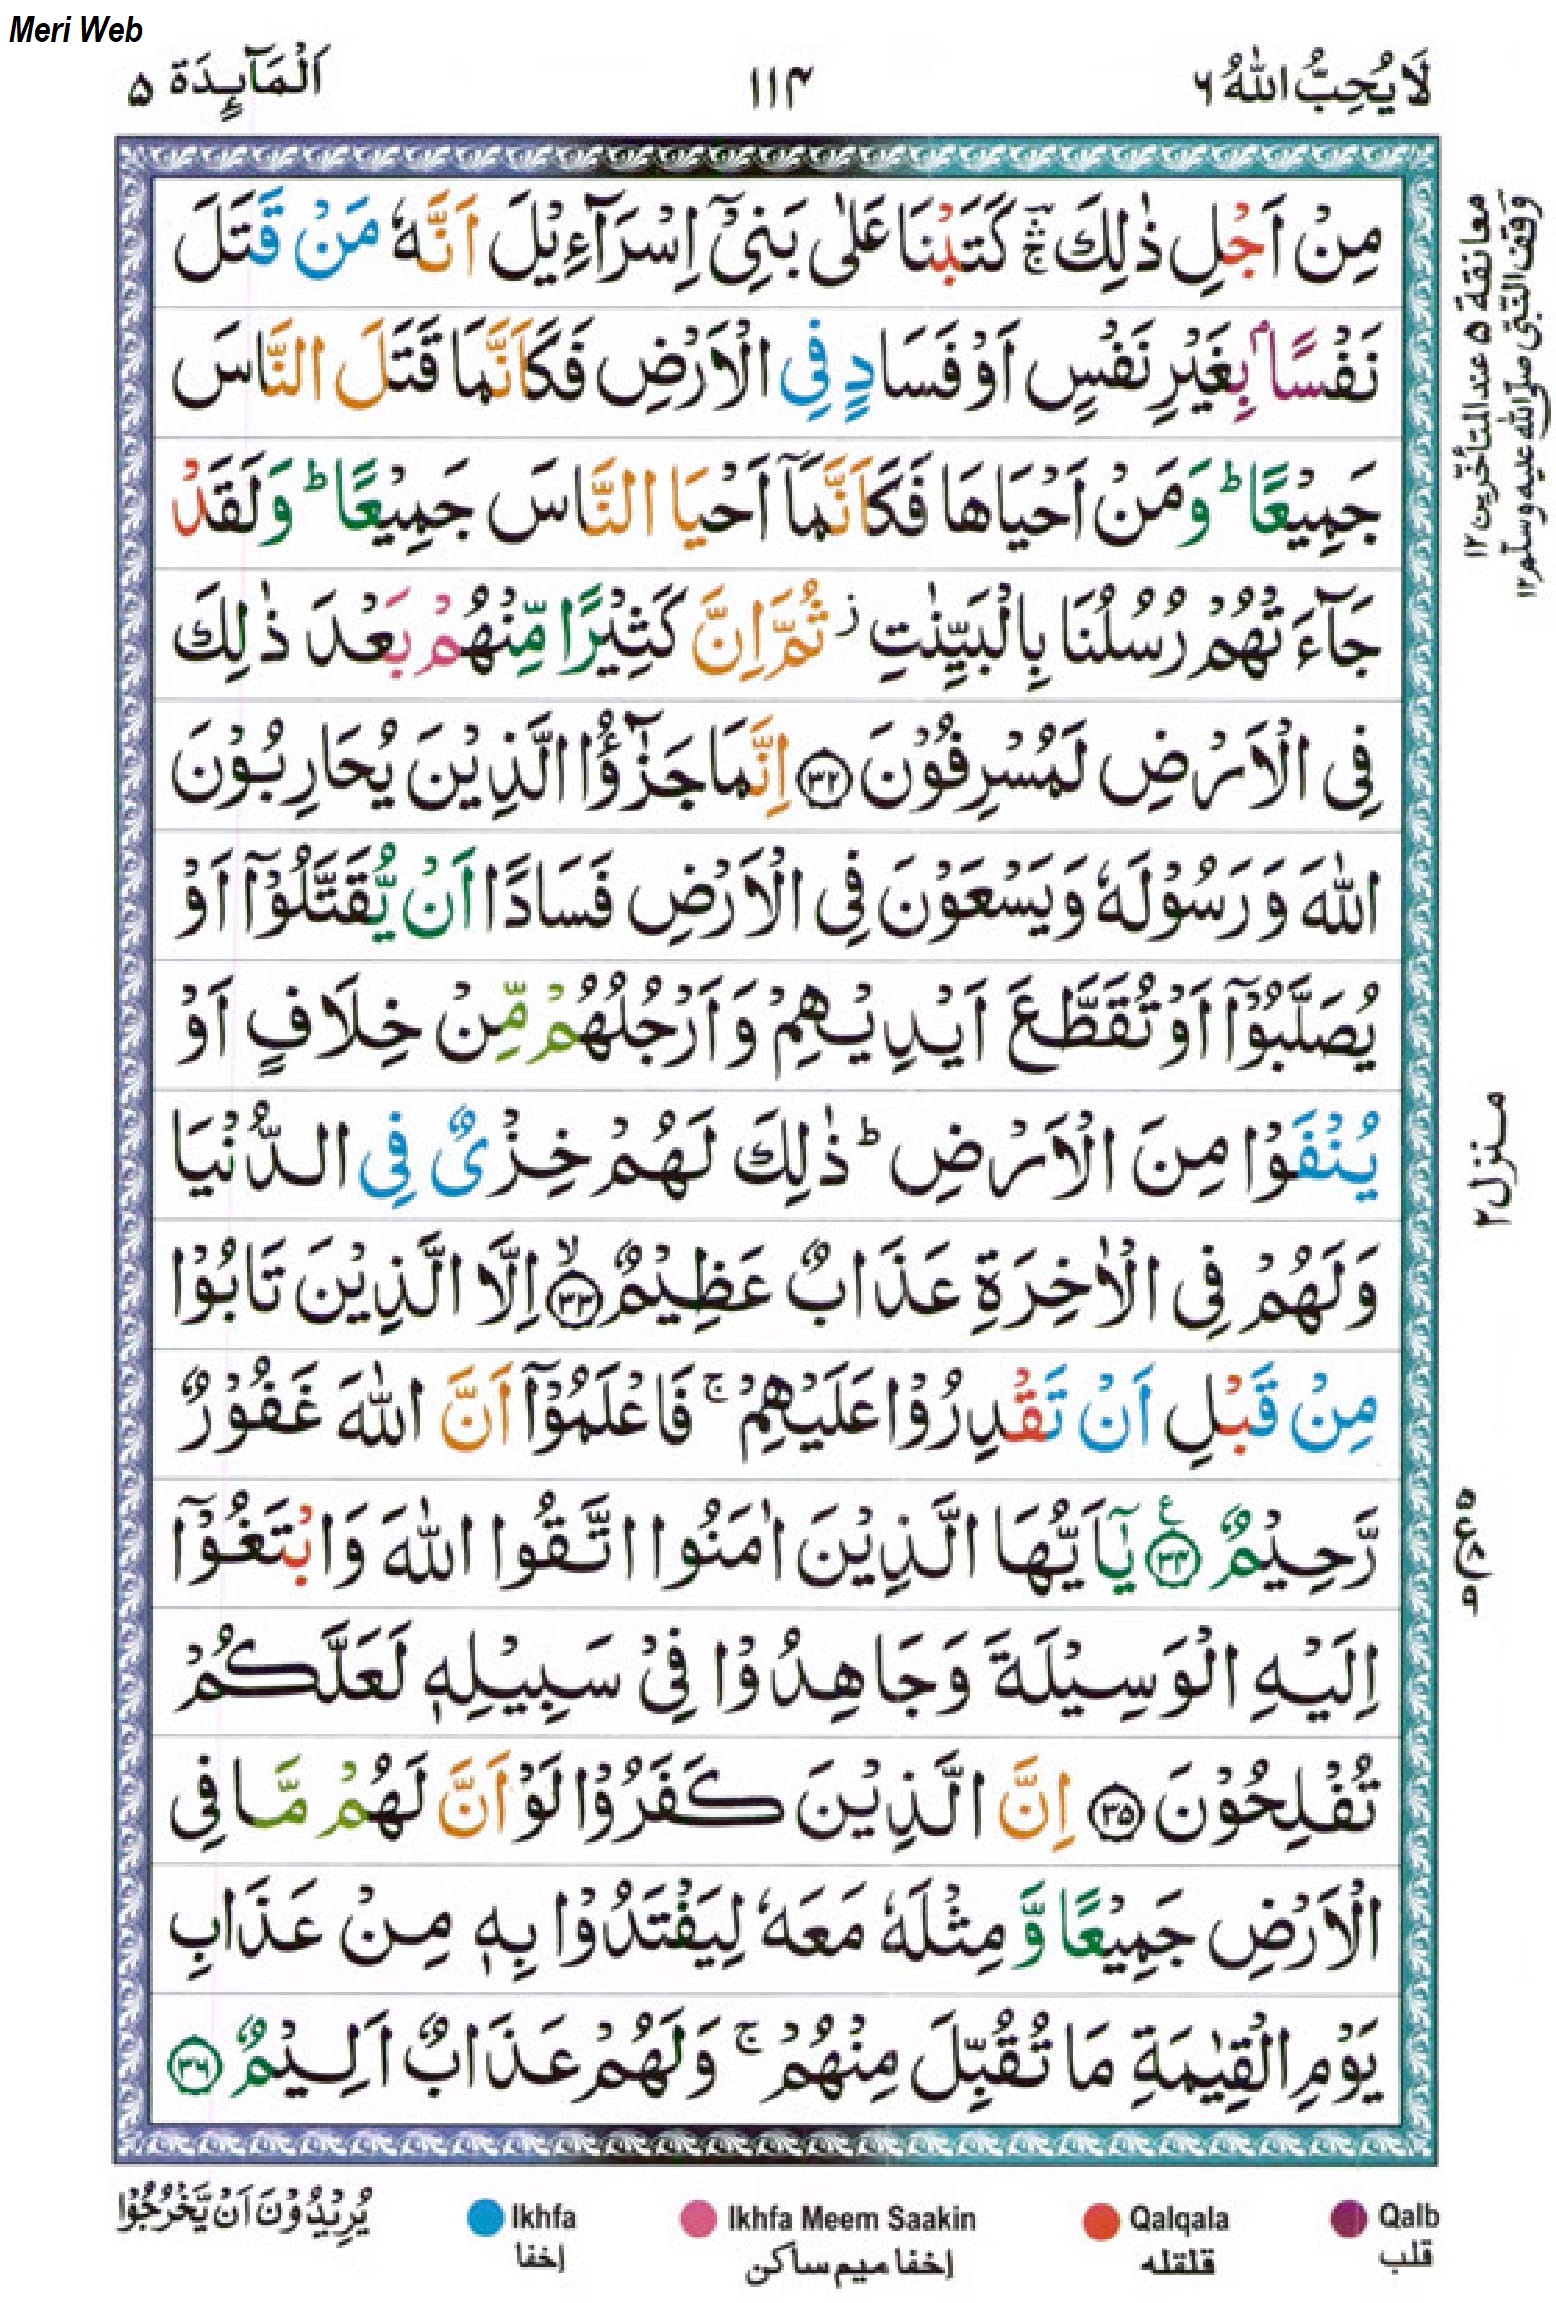 Meri Web
لَا يُحِبُّ اللّٰهُ ۶
۱۱۴
اَلْمَآىِٕدَة ۵
مِنْ اَجْلِ ذٰلِكَ ۛۚ كَتَبْنَا عَلٰى بَنِیْۤ اِسْرَآءِیْلَ اَنَّهٗ مَنْ قَتَلَ
نَفْسًۢا بِغَیْرِ نَفْسٍ اَوْ فَسَادٍ فِی الْاَرْضِ فَكَاَنَّمَا قَتَلَ النَّاسَ
جَمِیْعًا ؕ وَ مَنْ اَحْیَاهَا فَكَاَنَّمَاۤ اَحْیَا النَّاسَ جَمِیْعًا ؕ وَ لَقَدْ
جَآءَتْهُمْ رُسُلُنَا بِالْبَیِّنٰتِ ؗ ثُمَّ اِنَّ كَثِیْرًا مِّنْهُمْ بَعْدَ ذٰلِكَ
فِی الْاَرْضِ لَمُسْرِفُوْنَ ۳۲ اِنَّمَا جَزٰٓؤُا الَّذِیْنَ یُحَارِبُوْنَ
اللّٰهَ وَ رَسُوْلَهٗ وَ یَسْعَوْنَ فِی الْاَرْضِ فَسَادًا اَنْ یُّقَتَّلُوْۤا اَوْ
یُصَلَّبُوْۤا اَوْ تُقَطَّعَ اَیْدِیْهِمْ وَ اَرْجُلُهُمْ مِّنْ خِلَافٍ اَوْ
یُنْفَوْا مِنَ الْاَرْضِ ؕ ذٰلِكَ لَهُمْ خِزْیٌ فِی الدُّنْیَا
وَ لَهُمْ فِی الْاٰخِرَةِ عَذَابٌ عَظِیْمٌ ۳۳ۙ اِلَّا الَّذِیْنَ تَابُوْا
مِنْ قَبْلِ اَنْ تَقْدِرُوْا عَلَیْهِمْ ۚ فَاعْلَمُوْۤا اَنَّ اللّٰهَ غَفُوْرٌ
رَّحِیْمٌ ۳۴ع یٰۤاَیُّهَا الَّذِیْنَ اٰمَنُوا اتَّقُوا اللّٰهَ وَ ابْتَغُوْۤا
اِلَیْهِ الْوَسِیْلَةَ وَ جَاهِدُوْا فِیْ سَبِیْلِهٖ لَعَلَّكُمْ
تُفْلِحُوْنَ ۳۵ اِنَّ الَّذِیْنَ كَفَرُوْا لَوْ اَنَّ لَهُمْ مَّا فِی
الْاَرْضِ جَمِیْعًا وَّ مِثْلَهٗ مَعَهٗ لِیَفْتَدُوْا بِهٖ مِنْ عَذَابِ
یَوْمِ الْقِیٰمَةِ مَا تُقُبِّلَ مِنْهُمْ ۚ وَ لَهُمْ عَذَابٌ اَلِیْمٌ ۳۶
وقف النّبی صلی اللّٰه علیه وسلم ۱۲
معانقة ۵ عند المتأخرین ۱۲
منزل ۲
یُرِیْدُوْنَ اَنْ یَّخْرُجُوْا
Ikhfa
اخفا
Ikhfa Meem Saakin
اخفا میم ساکن
Qalqala
قلقله
Qalb
قلب